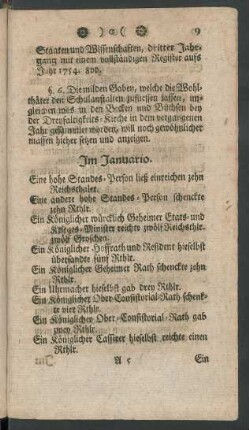 ❀ )o( ❀ 9
Staaten und Wissenschaften, dritter Jahr-
gang mit einem vollständigen Register aufs
Jahr 1754. 8vo.
§. 6. Die milden Gaben, welche die Wohl-
thäter den Schulanstalten zufliessen lassen, im-
gleichen was in den Becken und Büchsen bey
der Dreyfaltigkeits-Kirche in dem vergangenen
Jahr gesammlet worden, will noch gewöhnlicher
massen hieher setzen und anzeigen.
Im Januario.
Eine hohe Standes-Person ließ einreichen zehn
Reichsthaler.
Eine andere hohe Standes-Person schenckte
zehn Rthlr.
Ein Königlicher würcklich Geheimer Etats- und
Krieges-Minister reichte zwölf Reichsthlr.
zwölf Groschen.
Ein Königlicher Hoffrath und Resident hieselbst
übersandte fünf Rthlr.
Ein Königlicher Geheimer Rath schenckte zehn
Rthlr.
Ein Uhrmacher hieselbst gab drey Rthlr.
Ein Königlicher Ober-Consistorial-Rath schenk-
te vier Rthlr.
Ein Königlicher Ober-Consistorial-Rath gab
zwey Rthlr.
Ein Königlicher Cassirer hieselbst reichte einen
Rthlr.
A 5 Ein